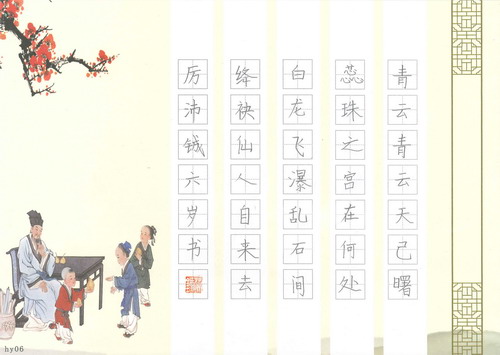 青云青云天己曙
蕊珠之宫在何处
白龙飞瀑乱石间
绛袂仙人自来去
厉沛铖六岁书
hy06